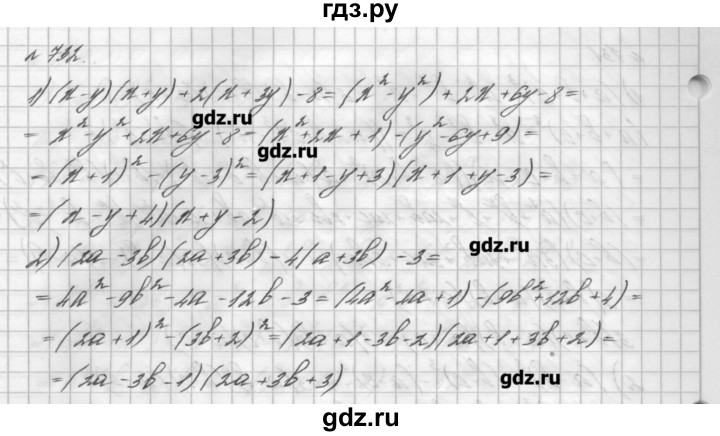 гдз.ру
№ 732.
1) (x-y)(x+y)+2(x+3y)-8=(x²-y²)+2x+6y-8=
= x²-y²+2x+6y-8=(x²+2x+1)-(y²-6y+9)=
gdz.ru
gdz.ru
=(x+1)²-(y-3)²=(x+1-y+3)(x+1+y-3)=
=(x-y+4)(x+y-2)
2) (2a-3b)(2a+3b)-4(a+3b)-3=
gdz.ru
=4a²-9b²-4a-12b-3=(4a²-4a+1)-(9b²+12b+4)=
=(2a+1)²-(3b+2)²=(2a+1-3b-2)(2a+1+3b+2)=
=(2a-3b-1)(2a+3b+3)
gdz.ru
gdz.ru